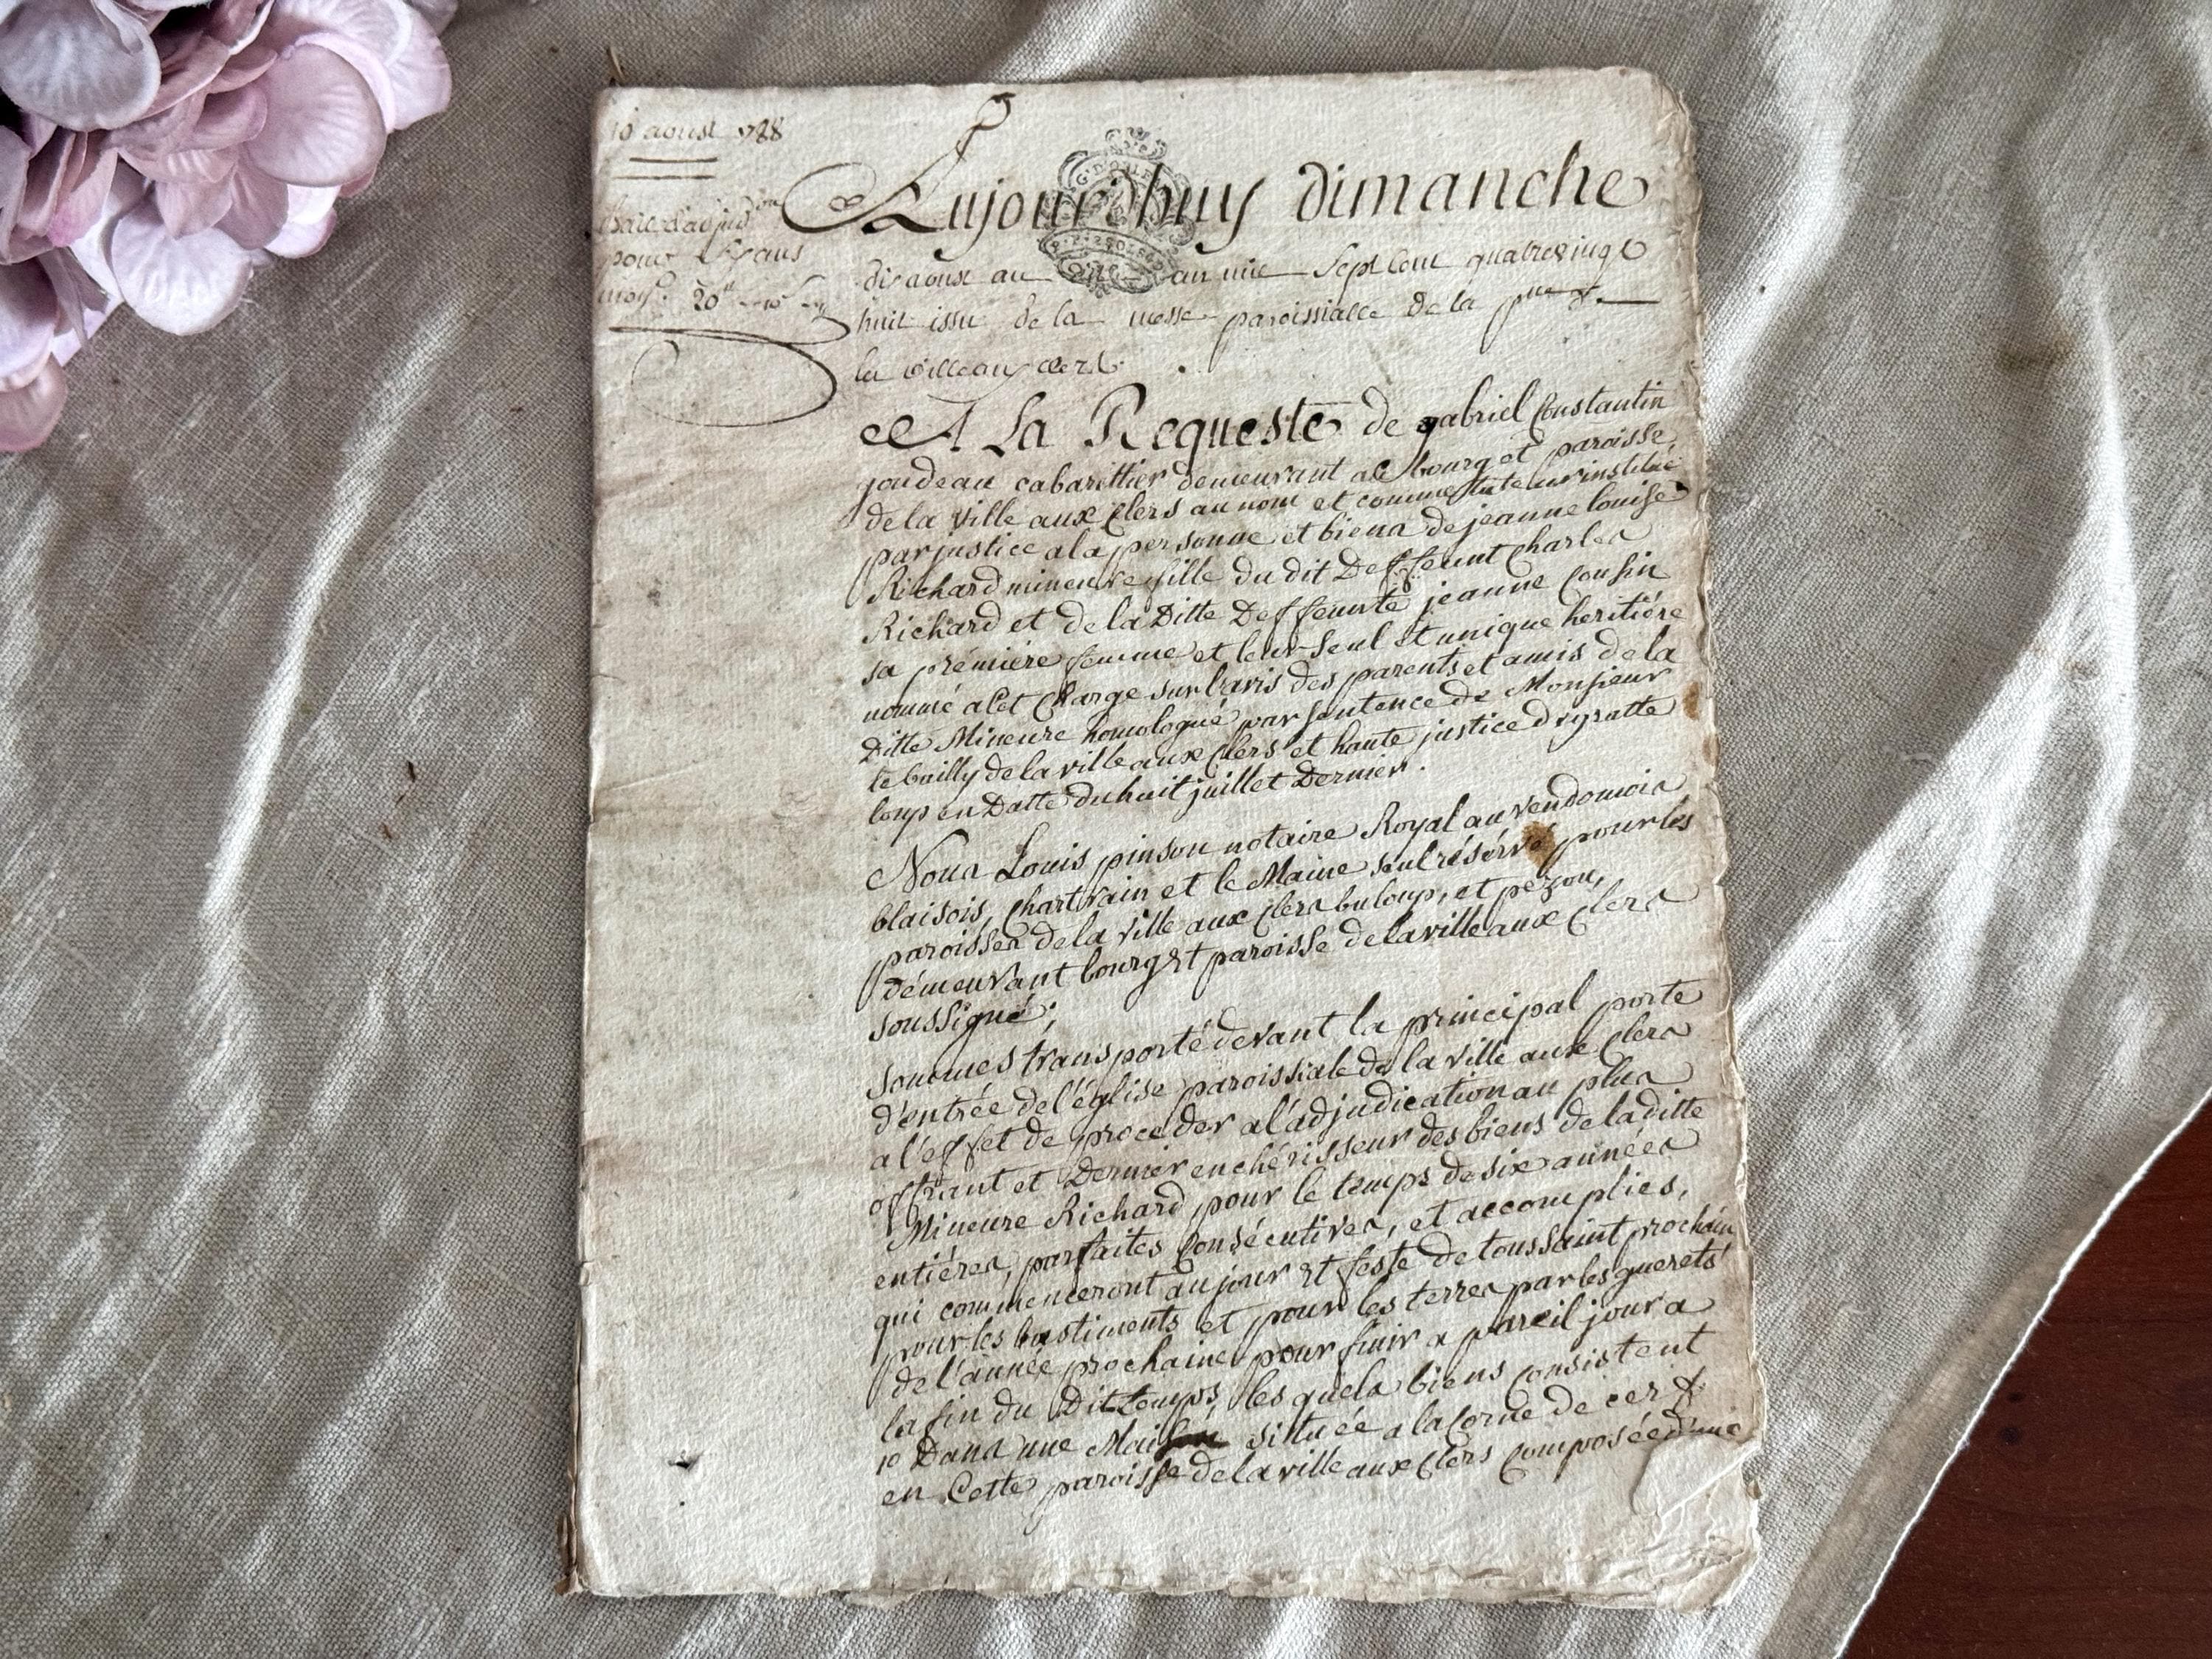 10 aoust 1788
Bail d'adjud.on
pour six ans
moy.t 20
Aujourdhuy dimanche
G. D'ORLE
dix aoust au dit an mil Sept Cent quatrevingt
huit issu de la messe paroissialle de la
la ville aux clers
A La Requeste de gabriel Constantin
joudeau cabarettier demeurant au bourg et paroisse
de la Ville aux Clers au nom et comme tuteur institué
par justice a la personne et biens de jeanne louise
Richard mineure fille du dit Deffeunt Charles
Richard et de la Ditte Deffeunte jeanne Cousin
sa prémiére femme et leur Seul et unique heritiére
nommé a Cet Charge sur l'avis des parents et amis de la
Ditte Mineure homologué par Sentence de Monsieur
le bailly de la ville aux Clers et haute justice d'igratte
loup en Datte du huit juillet Dernier.
Nous Louis pinson notaire Royal au Vendomois
blaisois, Chartrain et le Maine seul résérvé pour les
paroisses de la Ville aux Clers buloup, et pezou,
démeurant bourg et paroisse de la ville aux Clers
soussigné;
Sommes transporté devant la principal porte
d'entrée de l'église paroissiale de la Ville aux Clers
a l'effet de proceder a l'adjudication au plus
offrant et Dernier enchérisseur des biens de la ditte
Mineure Richard pour le temps de six années
entiéres, parfaites Consécutives, et accomplies,
qui commenceront au jour et feste de toussaint prochain
pour les bastiments et pour les terres par les guerets
de l'année prochaine pour finir a pareil jour a
la fin du Dit temps, les quels biens Consistent
1o Dans une Maison sittuée a la Corne de cerf
en Cette paroisse de la ville aux Clers Composée d'une